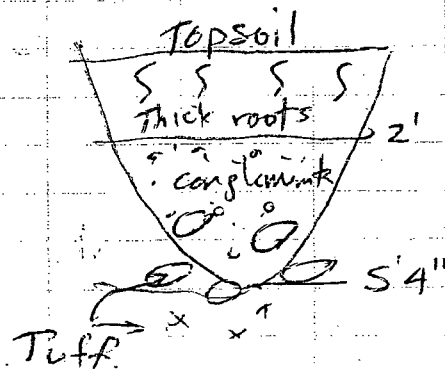 Topsoil
Thick roots
2'
conglomerate
5'4"
Tuff